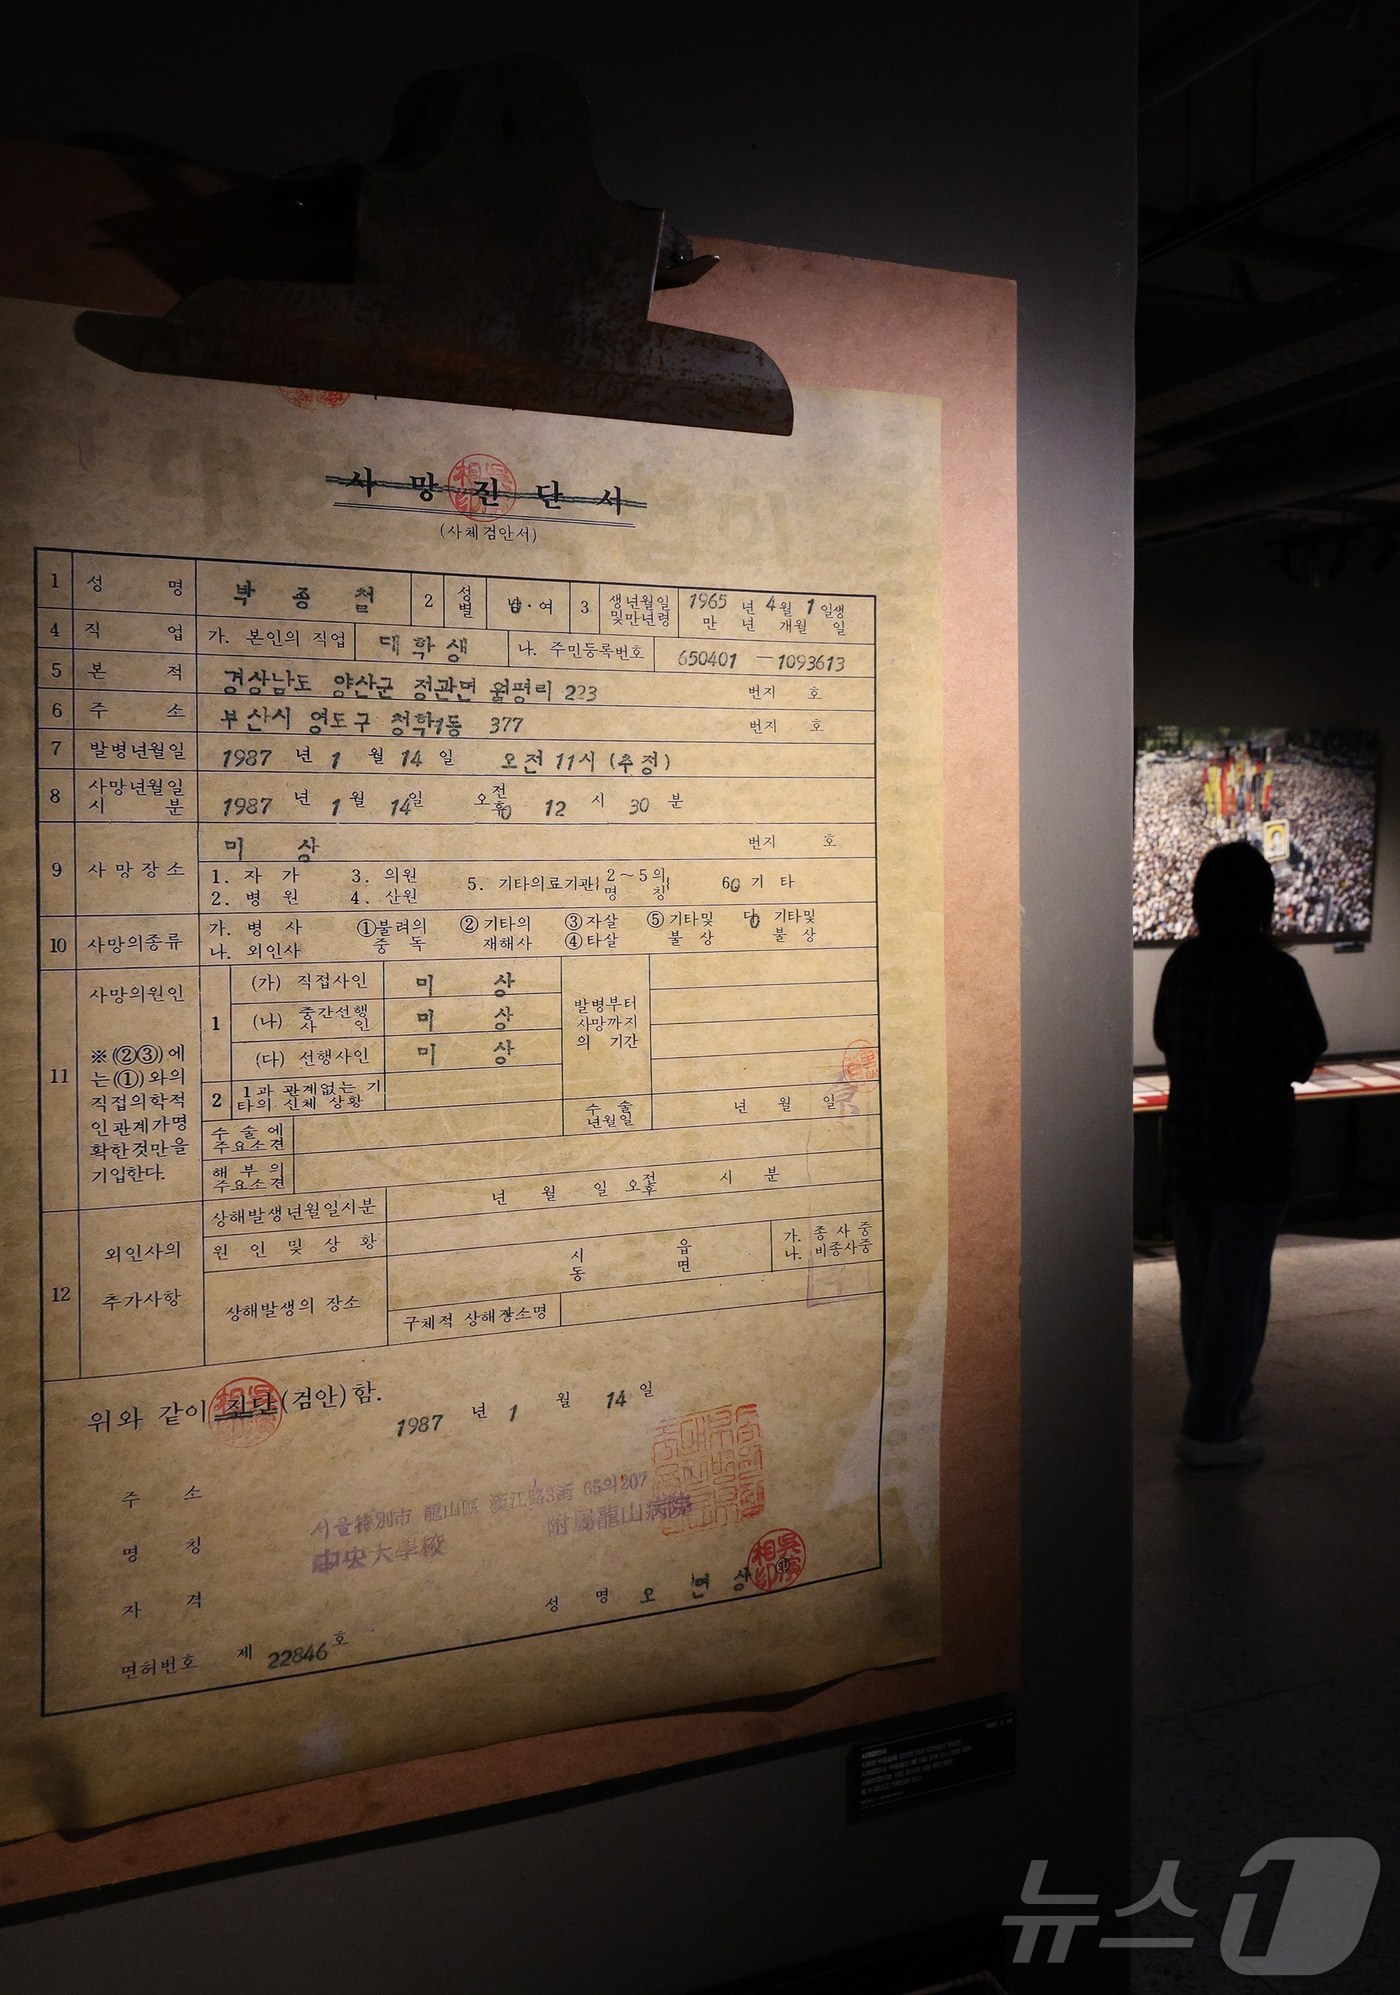 사 망 진 단 서
(사체검안서)
1 성 명 박 종 철 2 성별 남·여 3 생년월일 및만년령 1965 년 4 월 1 일생 만 년 개월 일
4 직 업 가. 본인의 직업 대학생 나. 주민등록번호 650401 — 1093613
5 본 적 경상남도 양산군 정관면 월평리 223 번지 호
6 주 소 부산시 영도구 청학1동 377 번지 호
7 발병년월일 1987 년 1 월 14 일 오전 11시 (추정)
8 사망년월일 시 분 1987 년 1 월 14일 오전후 12 시 30 분
9 사망장소 미 상 번지 호
1. 자 가 3. 의원 5. 기타의료기관 2~5의 명 칭 6 기 타
2. 병 원 4. 산원
10 사망의종류 가. 병 사 ①불려의 중 독 ②기타의 재해사 ③자살 ⑤기타및 불 상 기타및 불 상
나. 외인사 ④타살
11 사망의원인
※(②③)에
는(①)와의
직접의학적
인관계가명
확한것만을
기입한다.
1 (가) 직접사인 미 상
(나) 중간선행 사 인 미 상
(다) 선행사인 미 상
발병부터
사망까지
의 기간
2 1과 관계없는 기
타의 신체 상황
수 술 에
주요소견
수 술
년월일
년 월 일
해 부 의
주요소견
12 외인사의
추가사항
상해발생년월일시분 년 월 일 오전후 시 분
원 인 및 상 황
상해발생의 장소 시 동 읍 면
가. 종 사 중
나. 비종사중
구체적 상해장소명
위와 같이 진단(검안)함.
1987 년 1 월 14 일
주 소 서울特別市 龍山區 漢江路3街 65의207
명 칭 中央大學校 附屬龍山病院
자 격 성 명 오 연 상
면허번호 제 22846 호
뉴스1